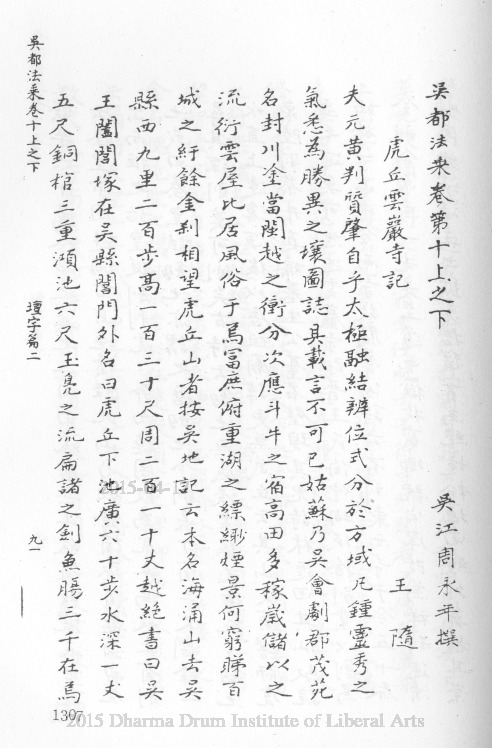 吳都法乘卷第十上之下
吳江周永年撰
虎丘雲巖寺記
王隨
夫元黃判質肇自乎太極融結辨位式分於方域凡鍾靈秀之
氣悉為勝異之壤圖誌具載言不可已姑蘇乃吳會劇郡茂苑
名封川塗當閩越之衝分次應斗牛之宿高田多稼歲儲以之
流衍雲屋比居風俗于焉富庶俯重湖之縹緲煙景何窮睇百
城之紆餘金剎相望虎丘山者按吳地記云本名海涌山去吳
縣西九里二百步高一百三十尺周二百一十丈越絕書曰吳
王闔閭塚在吳縣閶門外名曰虎丘下池廣六十步水深一丈
五尺銅棺三重澒池六尺玉鳧之流扁諸之劍魚腸三千在焉
吳都法乘卷十上之下
壇字笧二
九一
1307
2015-04-1
2015 Dharma Drum Institute of Liberal Arts